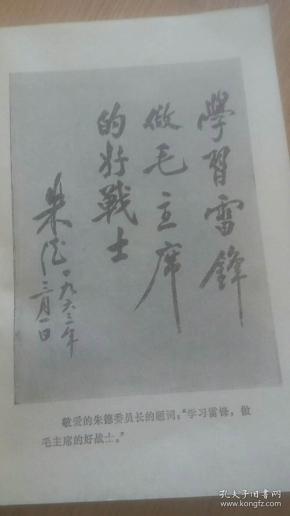 學習雷鋒
做毛主席
的好戰士
朱德
一九六三年
三月一日
敬爱的朱德委员长的题词："学习雷锋，做
毛主席的好战士。"
孔夫子旧书网